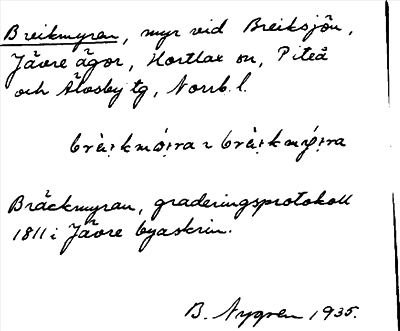 Breikmyran, myr vid Breiksjön,
Jävre ägor, Hortlax sn, Piteå
och Älvsby tg, Norrb. l.
Bräckmyran, graderingsprotokoll
1811 i Jävre byaskrin.
B. Nygren 1935.